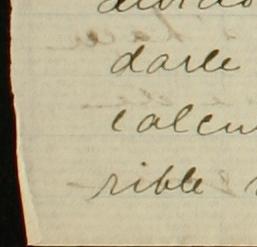 darle
calcu
rible